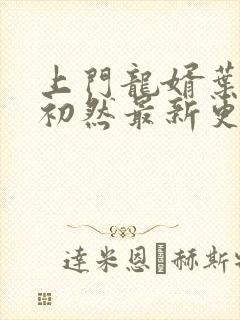 上門龍婿葉
初然最新更
達米恩�赫斯